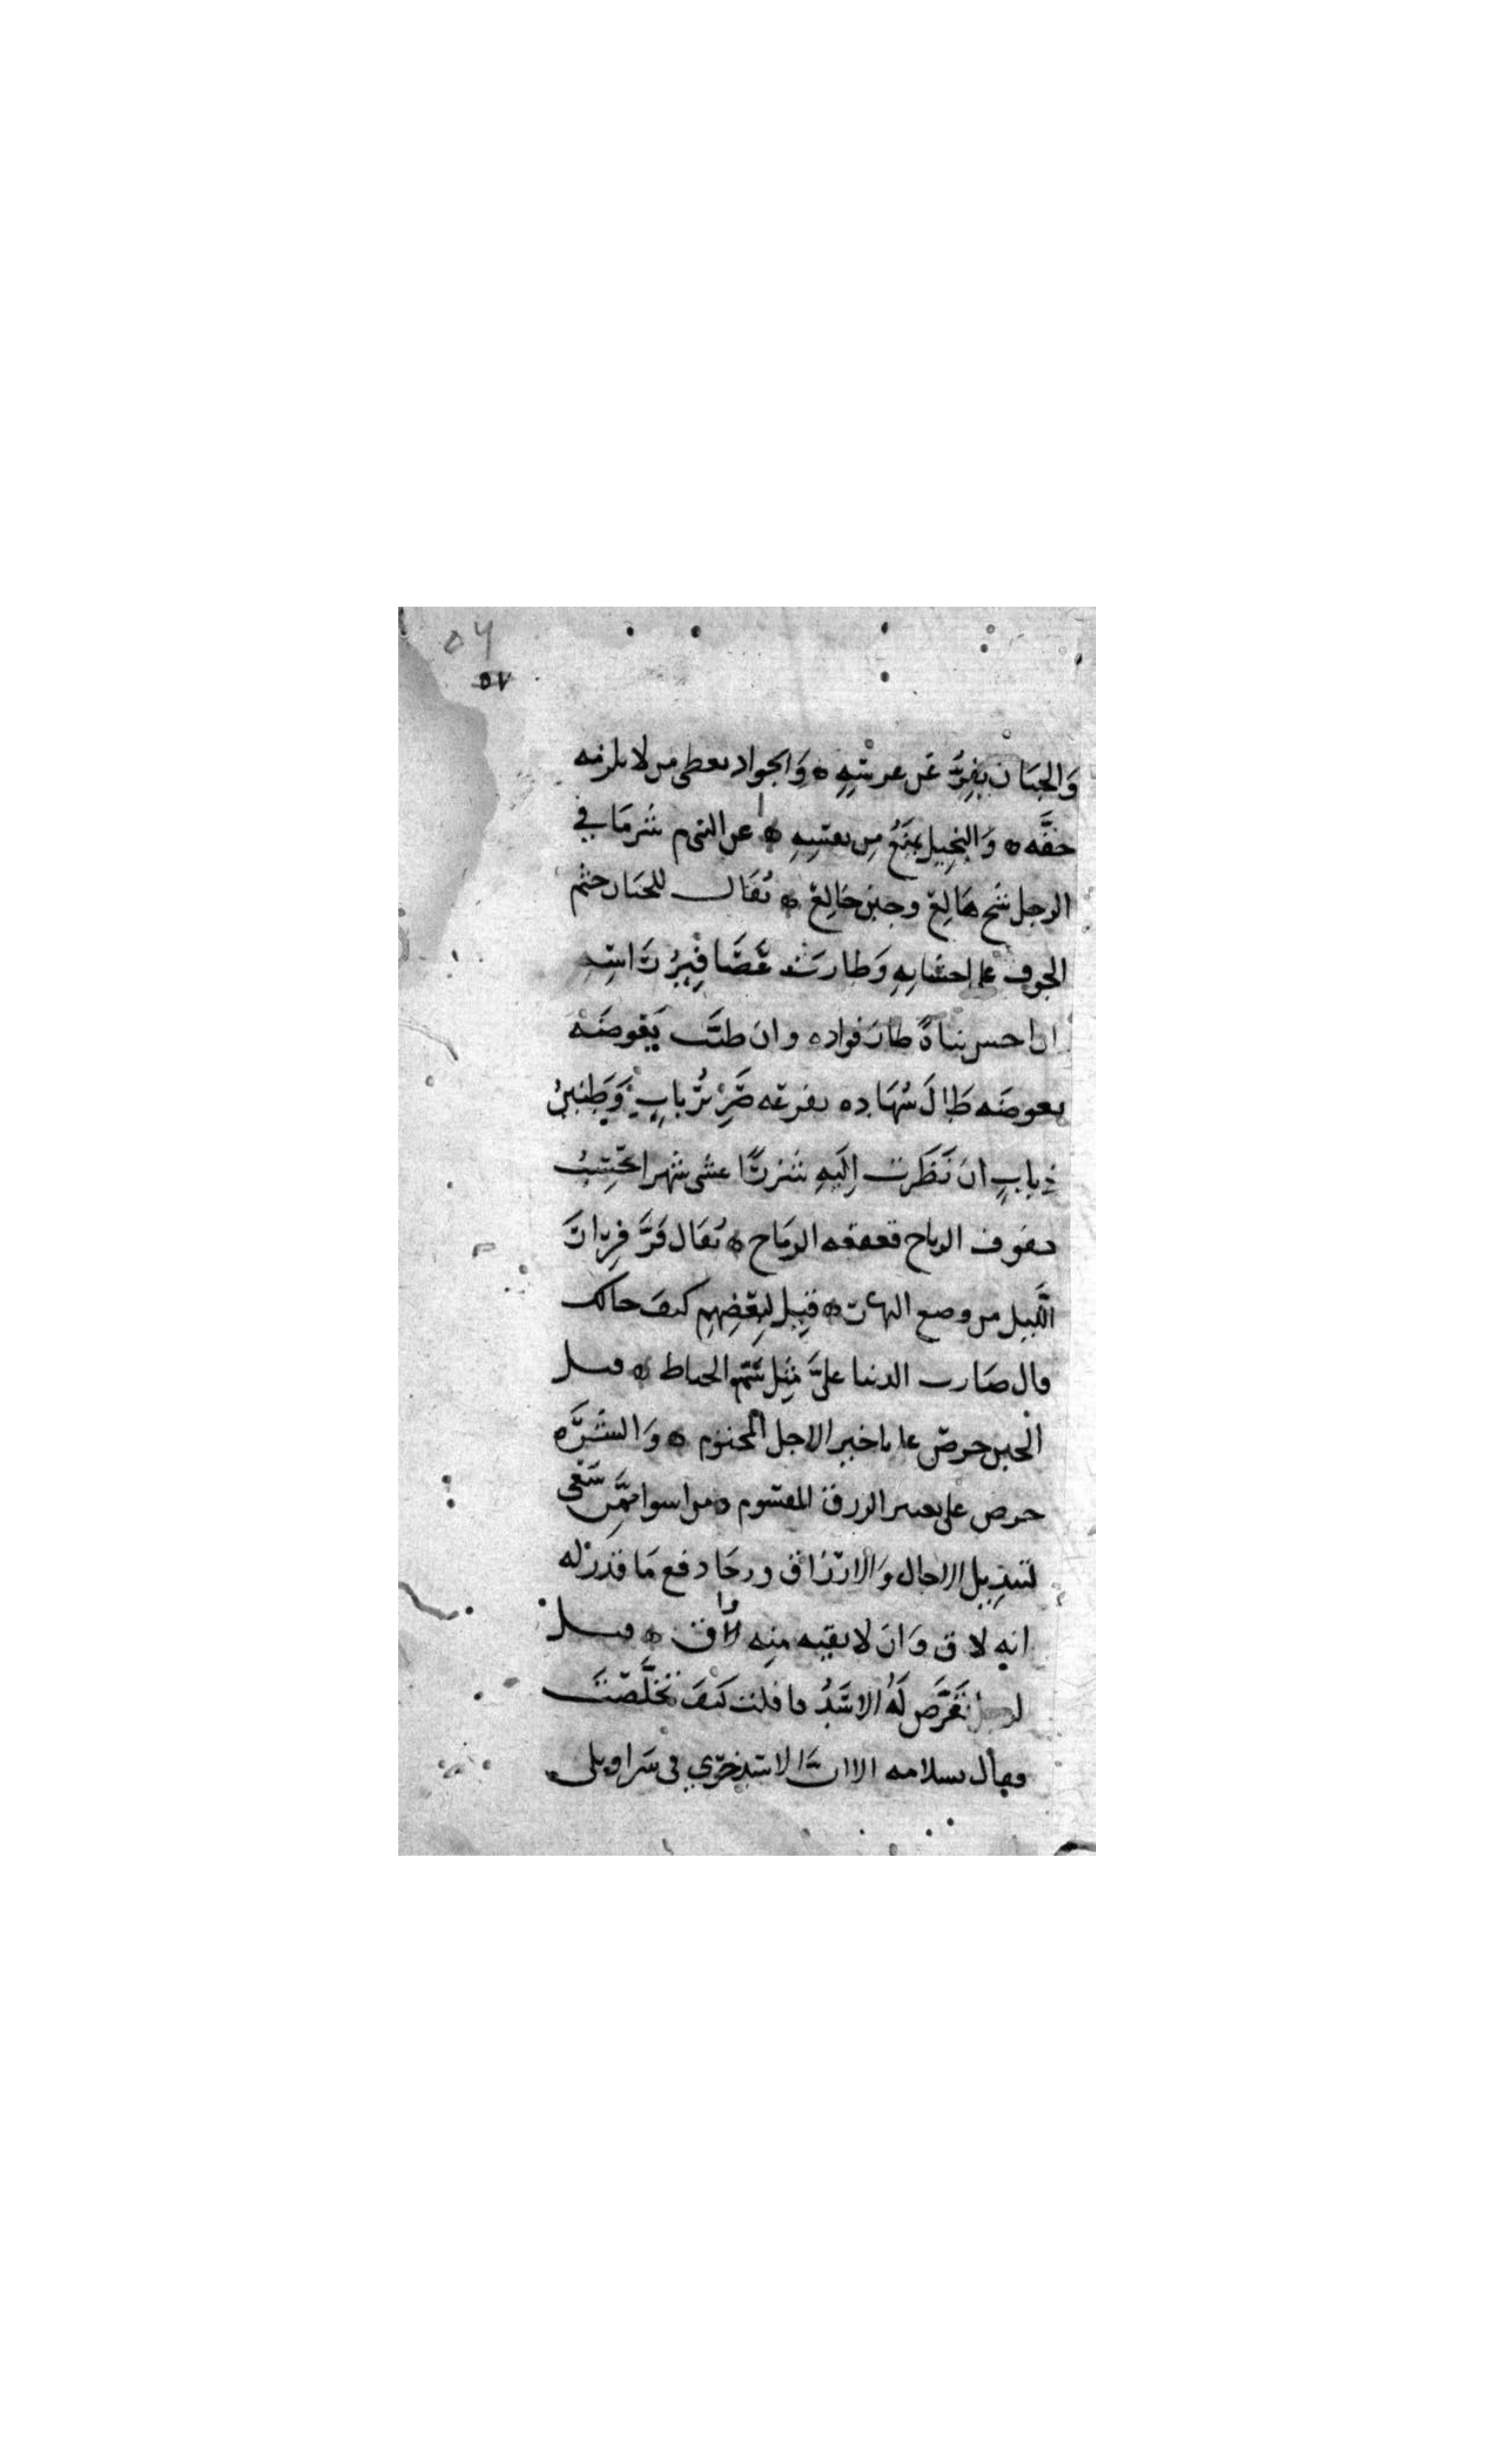 ٥٦
٥٧
وَالجبَان يفِرُّ عَن عرسِهِ ه وَالجواد يعطى من لا يلزمه
حقَّه ه وَالبخِيل يمنَعُ مِن نفسِهِ ه عن النبى م شر مَا في
الرجل شح هَالِع وجبن خَالِع ه يُقَال للجبان جثم
الخوف على احشايِهِ وَطارت عَصَافِيرُ رَاسِهِ
ان احس بنباةً طارَ فواده وانَ طنَّت بَعُوضَه
بعوضَه طَالَ سُهَاده يفزعه صَرِيرُ بابٍ وَطنينُ
ذبابٍ انَ نَظَرت اِلَيهِ شزرًا غشى شهرا يحسِبُ
حفوف الرياح قعقعه الرمَاح ه يُقَال فَرَّ فِرارَ
اللَّيل من وضح النهار ه قِيل لبَعْضِهِم كيفَ حالك
قال صَارت الدنيا علىَّ مِثل سَمّ الخياط ه قيل
الجبن حرصٌ على تاخير الاجل المحتوم ه وَالشَّرَه
حرص على تغيير الرزق المقسوم ه من اسوا ممَّن سَعَى
لتبدِيل الاجال وَالارْزَاق ورجَا دفع مَا قدر له
انه لاق وَانَ لا يقيه منِه واق ه قيل
لرجل تعَرَّض لَهُ الاسَدُ فافلت كَيفَ تخلَّصتَ
فقال بسلامه الا انَّ الاسَد خَرِي في سَراويلى